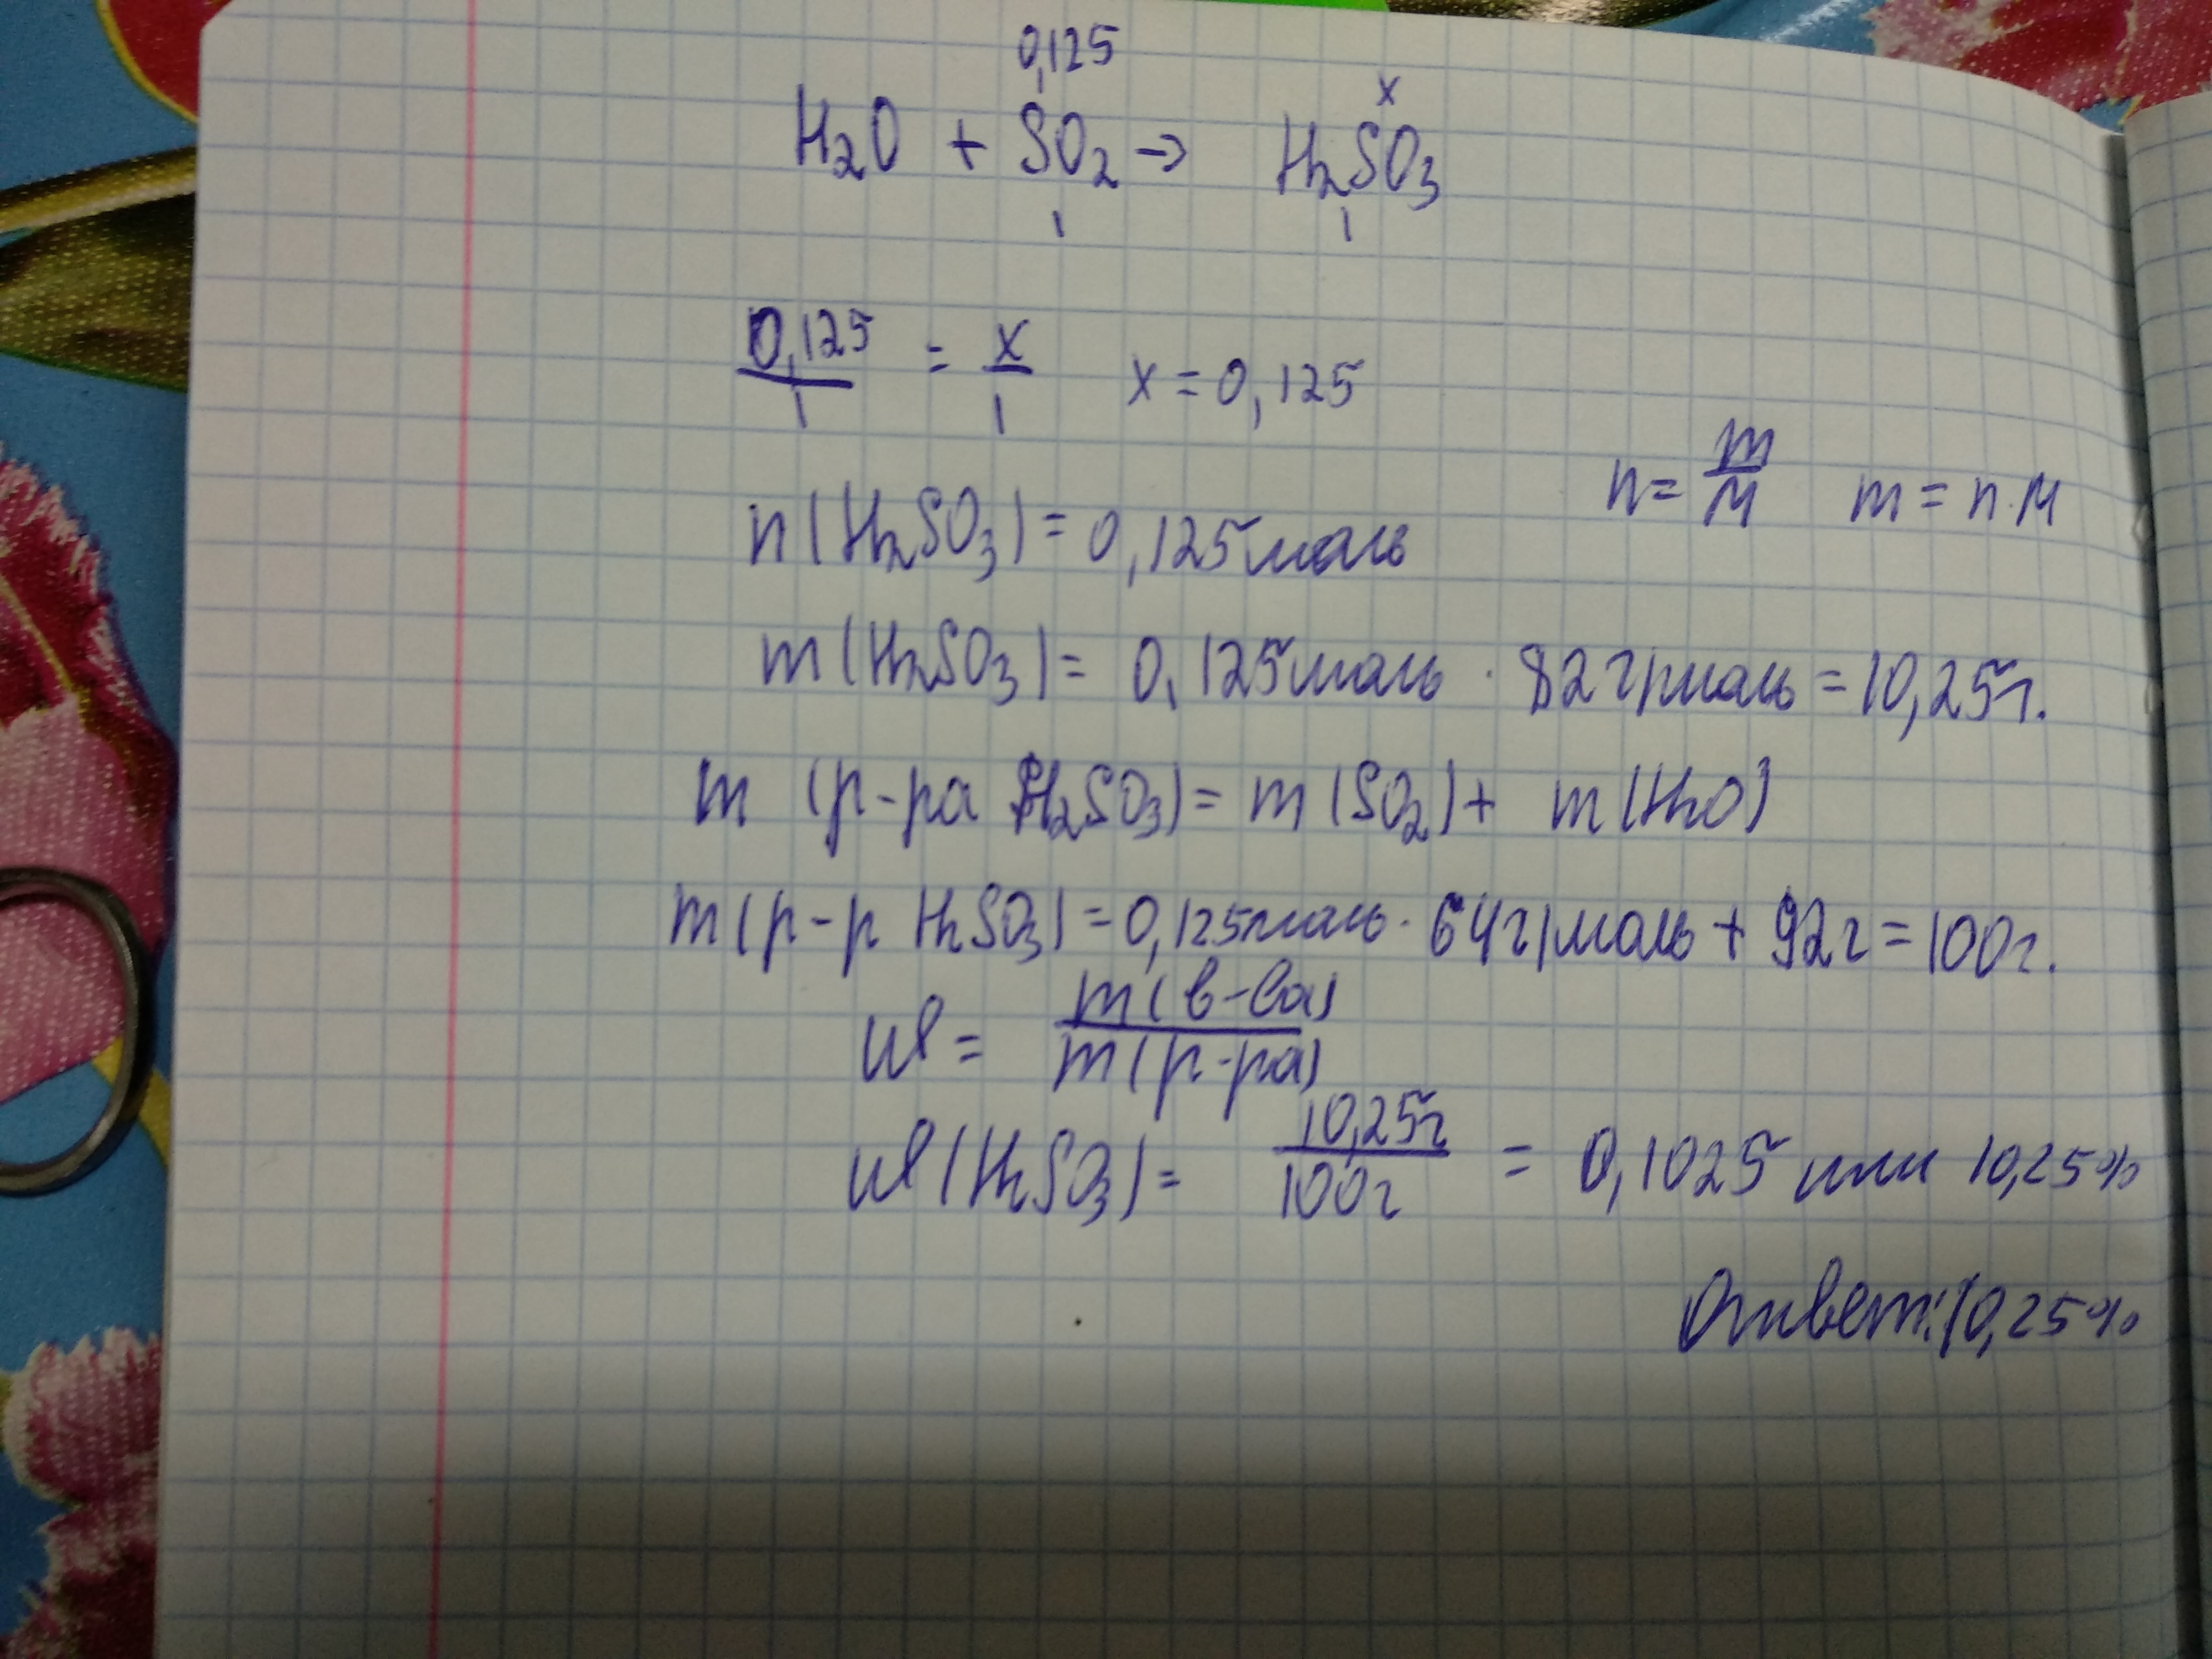 0,125 x
H₂O + SO₂ → H₂SO₃
1 1
0,125/1 = x/1 x = 0,125
n = m/M m = n·M
n(H₂SO₃) = 0,125моль
m(H₂SO₃) = 0,125моль · 82г/моль = 10,25г.
m (р-ра H₂SO₃) = m(SO₂) + m(H₂O)
m(р-р H₂SO₃) = 0,125моль · 64г/моль + 92г = 100г.
W = m(в-ва)/m(р-ра)
W(H₂SO₃) = 10,25г/100г = 0,1025 или 10,25%
Ответ: 10,25%